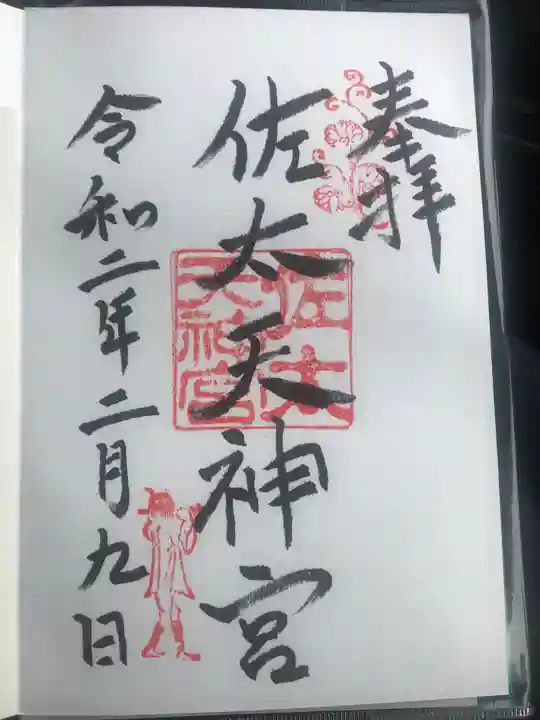 奉拝
佐太天神宮
佐太
天神宮
令和二年二月九日